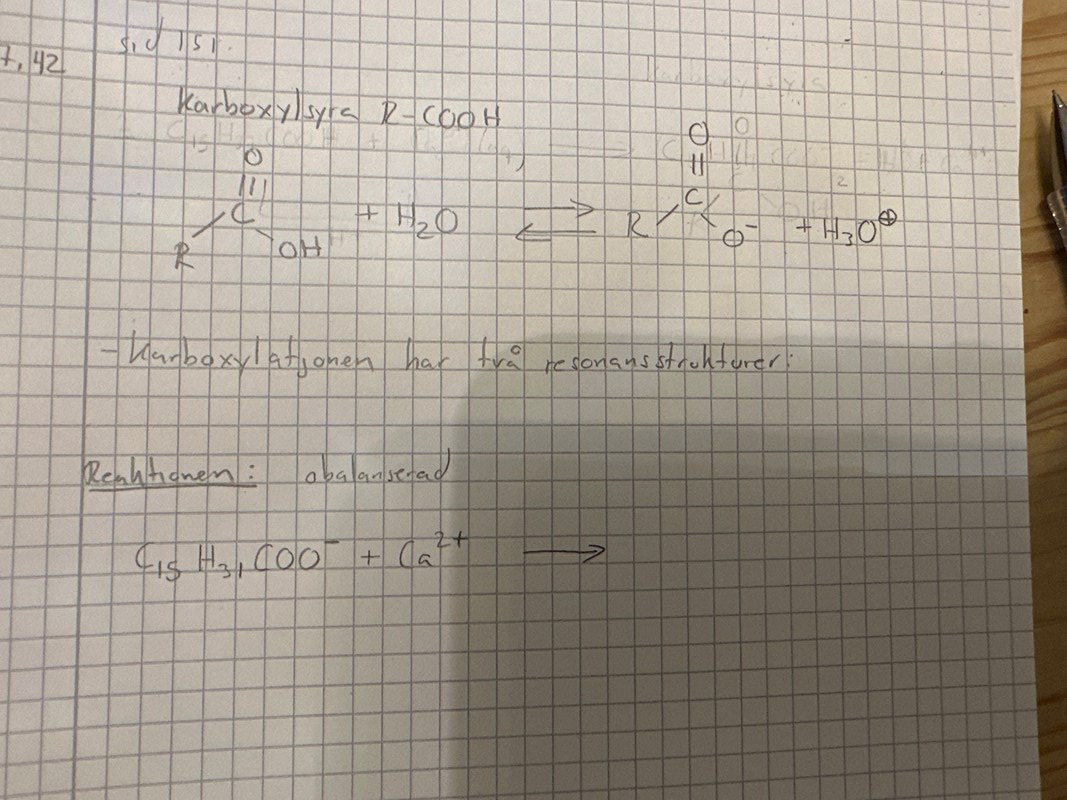 sid 151.
7.42
Karboxylsyra R-COOH
O O
||| ||
C + H₂O ⇌ C + H₃O⊕
R OH R O⁻
- Karboxylatjonen har två resonansstrukturer:
Reaktionen: obalanserad
C₁₅H₃₁COO⁻ + Ca²⁺ →